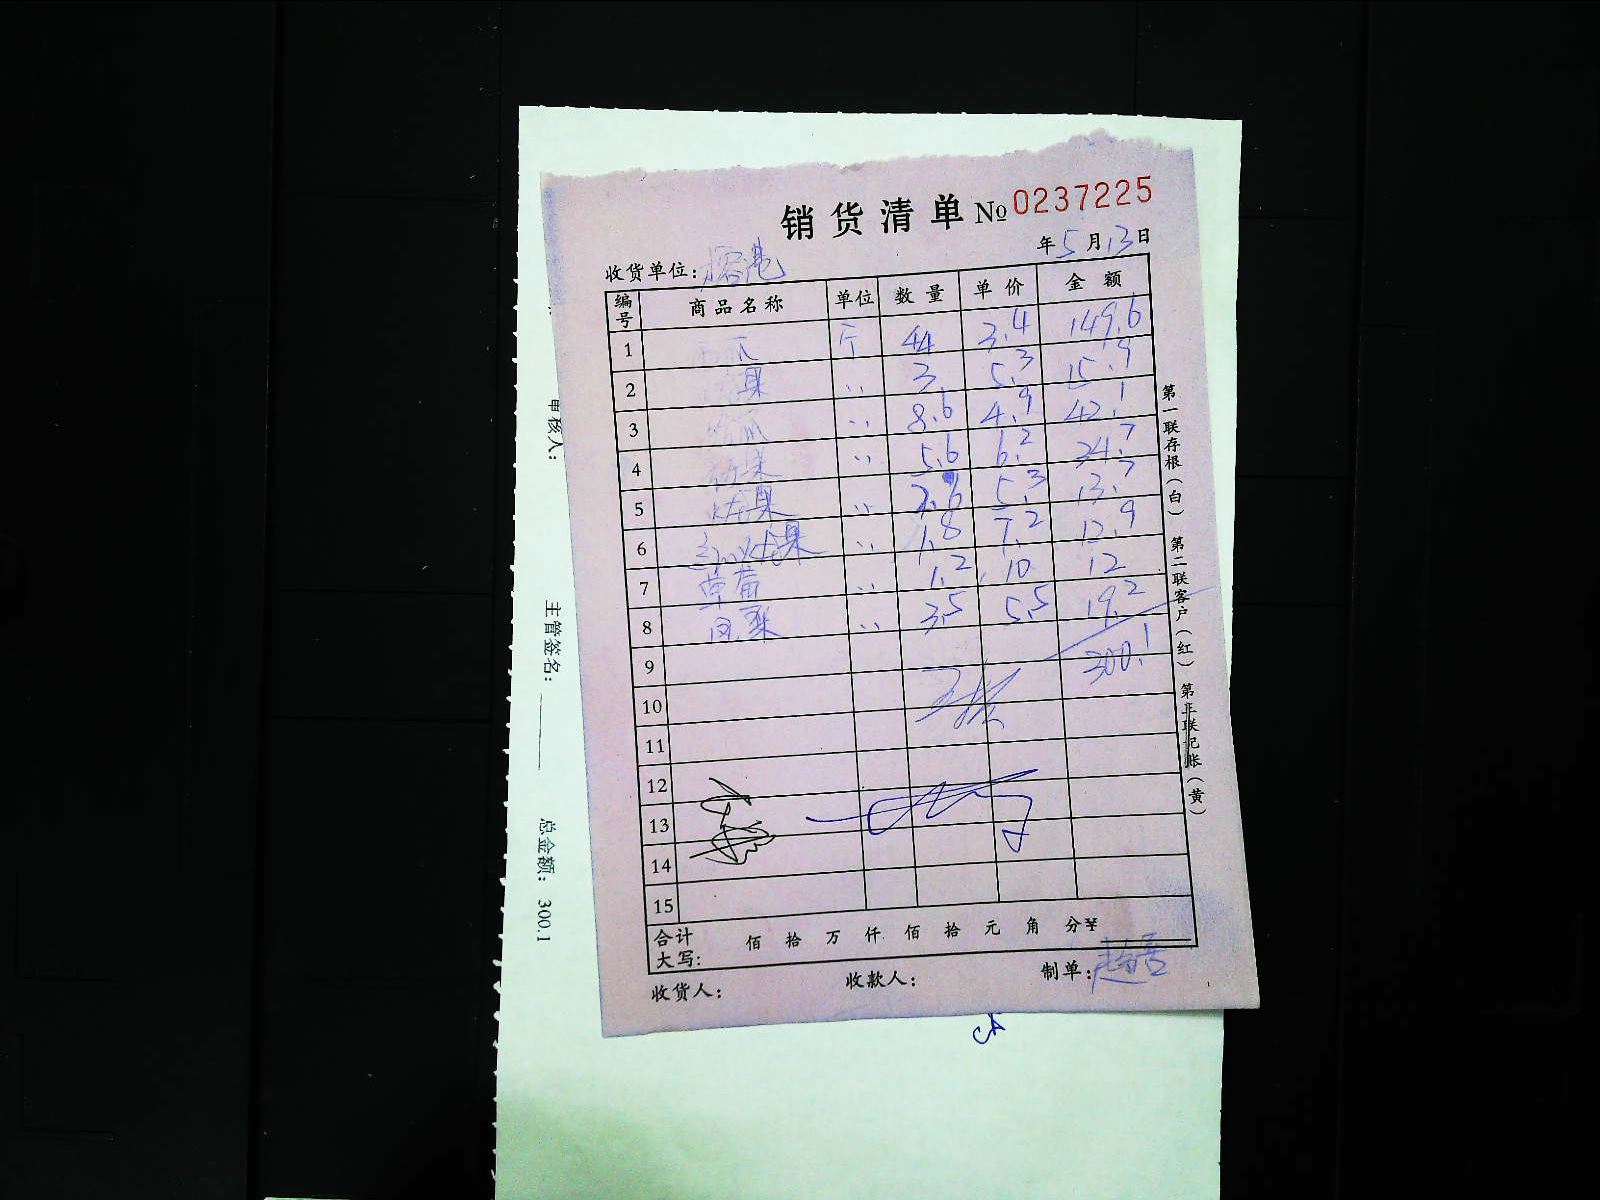 销货清单 № 0237225
年5月13日
收货单位：榕港
编号 商品名称 单位 数量 单价 金额
1 瓜 斤 44 3.4 149.6
2 果 〃 3 5.3 15.9
3 瓜 〃 8.6 4.9 42.1
4 〃 5.6 6.2 34.7
5 果 〃 2.6 5.3 13.7
6 果 〃 1.8 7.2 12.9
7 草莓 〃 1.2 10 12
8 凤梨 〃 3.5 5.5 19.2
9 300.1
10
11
12
13
14
15
合计大写： 佰 拾 万 仟 佰 拾 元 角 分¥
收货人： 收款人： 制单：
第一联存根（白） 第二联客户（红） 第三联记账（黄）
审核人：
主管签名：
总金额： 300.1